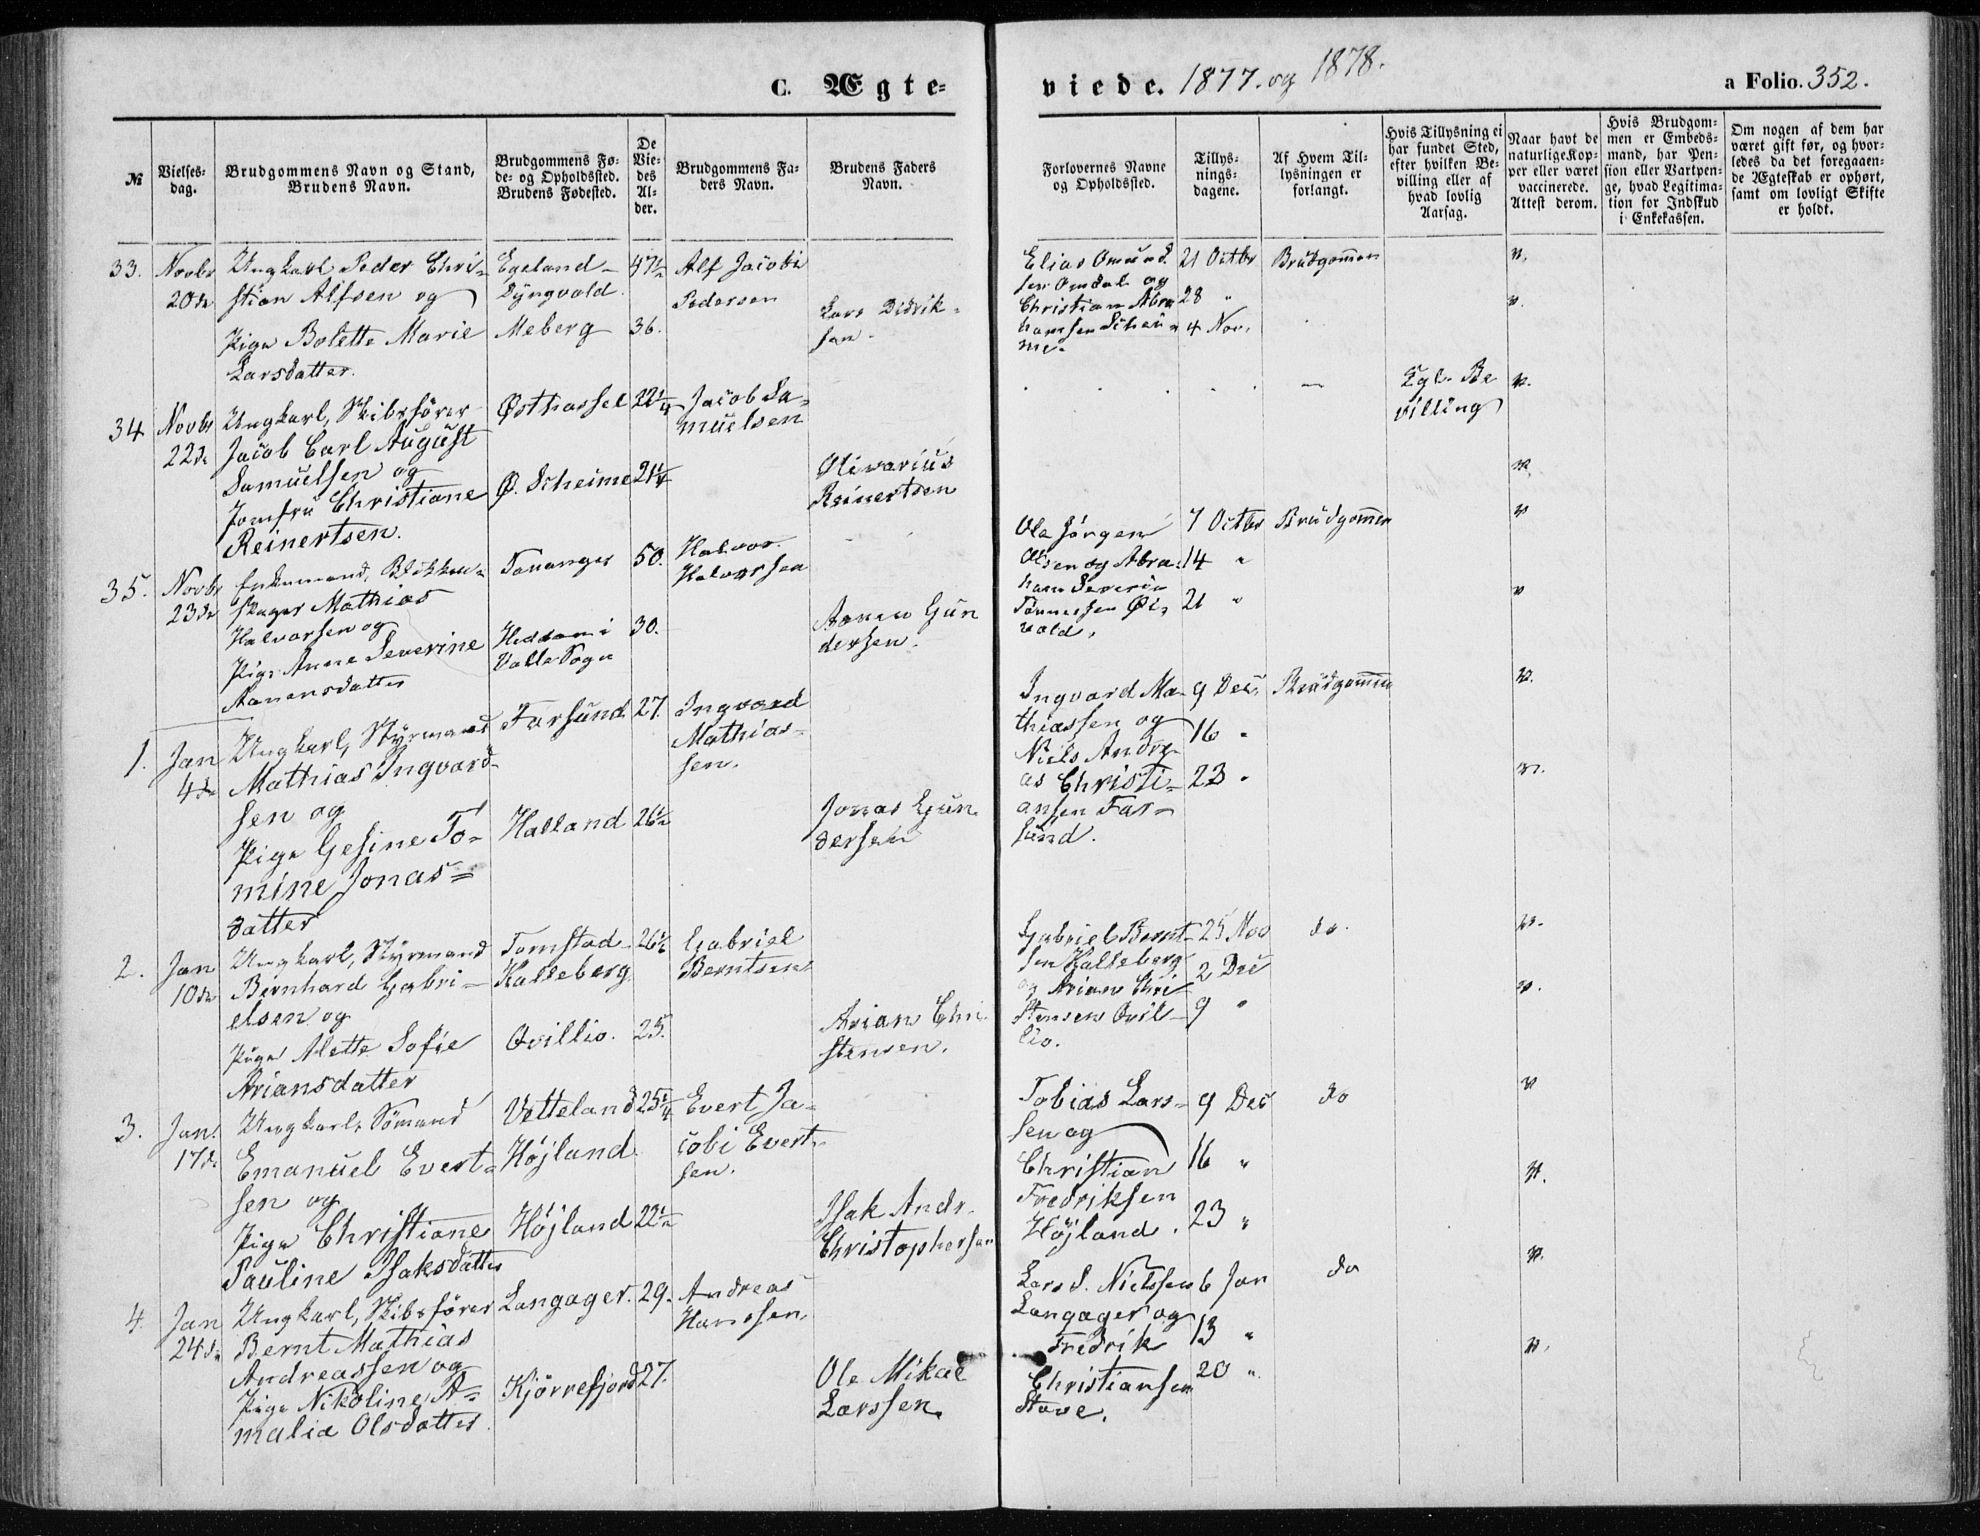 C. Ægte-
viede. 1877. og 1878.
a Folio. 352.
№
Vielses-
dag.
Brudgommens Navn og Stand,
Brudens Navn.
Brudgommens Fø-
de- og Opholdssted.
Brudens Fødested.
De
Vie-
des
Al-
der.
Brudgommens Fa-
ders Navn.
Brudens Faders
Navn.
Forlovernes Navne
og Opholdssted.
Tillys-
nings-
dagene.
Af Hvem Til-
lysningen er
forlangt.
Hvis Tillysning ei
har fundet Sted,
efter hvilken Be-
villing eller af
hvad lovlig
Aarsag.
Naar havt de
naturlige Kop-
per eller været
vaccinerede.
Attest derom.
Hvis Brudgom-
men er Embeds-
mand, har Pen-
sion eller Vartpen-
ge, hvad Legitima-
tion for Indskud
i Enkekassen.
Om nogen af dem har
været gift før, og hvor-
ledes da det foregaaen-
de Ægteskab er ophørt,
samt om lovligt Skifte
er holdt.
33.
Novbr
20de
Ungkarl Peder Chri-
stian Alfsen og
Pige Bolette Marie
Larsdatter.
Egeland-
Dyngvold
Meberg
47½
36.
Alf Jacobi
Pedersen
Lars Didrik-
sen.
Elias Omund
sen Omdal og
Christian Abra
hamsen Schei-
me.
21 Octbr
28 "
4 Nov.
Brudgommen
v.
v.
34
Novbr
22de
Ungkarl, Skibsfører
Jacob Carl August
Samuelsen og
Jomfru Christiane
Reinertsen.
Østhassel
Ø. Scheime
22¼
21¼
Jacob Sa-
muelsen
Olivarius
Reinertsen
Kgl. Be
villing
v.
v.
35.
Novbr
23de
Enkemand, Blikken-
slager Mathias
Halvorsen og
Pige Anne Severine
Aanensdatter
Tananger
Heddom i
Valle Sogn
50.
30.
Halvor
Halvorsen
Aanen Gun
dersen.
Ole Jørgen
Olsen og Abra-
ham Severin
Tønnessen Øi-
vold,
7 Octbr
14 "
21 "
Brudgommen
v
v
1.
Jan
4de
Ungkarl, Styrmand
Mathias Ingvard-
sen og
Pige Gesine To-
mine Jonas-
datter
Farsund
Halland
27.
26½
Ingvard
Mathias-
sen.
Jonas Gun-
dersen
Ingvard Ma-
thiassen og
Niels Andre-
as Christi-
ansen Far-
sund.
9 Dec.
16 "
23 "
Brudgommen
v.
v.
2.
Jan
10de
Ungkarl, Styrmand
Bernhard Gabri-
elsen og
Pige Alette Sofie
Ariansdatter
Tomstad-
Kalleberg
Qvillio.
26½
25.
Gabriel
Berntsen
Arian Chri-
stensen.
Gabriel Bernt-
sen Kalleberg
og Arian Chri
stensen Qvil-
lio.
25 Nov
2 Dec
9 "
do.
v.
v.
3.
Jan.
17de
Ungkarl, Sømand
Emanuel Evert-
sen og
Pige Christiane
Pauline Isaksdatter
Vatteland
Højland.
Højland
25¼
22½
Evert Ja-
cobi Evert-
sen.
Isak Andr.
Christophersen
Tobias Lars-
sen og
Christian
Fredriksen
Højland.
9 Dec
16 "
23 "
do
v
v.
4.
Jan
24de
Ungkarl, Skibsfører
Bernt Mathias
Andreassen og
Pige Nikoline A-
malia Olsdatter.
Langager.
Kjørrefjord
29.
27.
Andreas
Hanssen.
Ole Mikal
Larssen.
Lars S. Nielsen
Langager og
Fredrik
Christiansen
Stave.
6 Jan
13 "
20 "
do
v.
v.